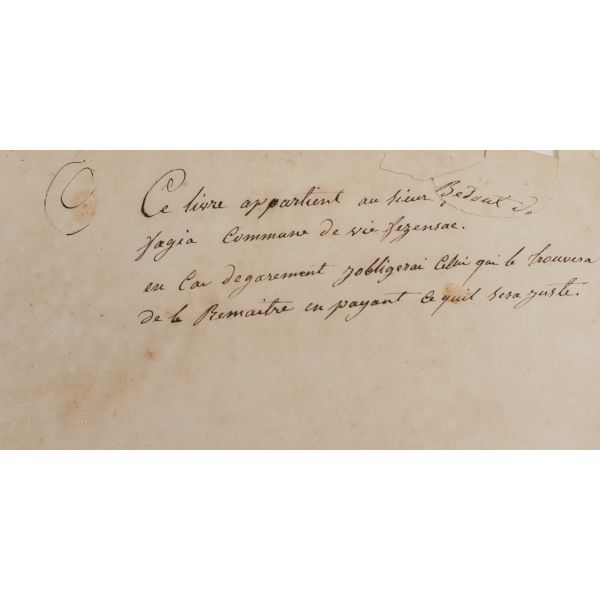 Ce livre appartient au sieur Bedout d.
fagia Commune de vic fezensac.
en Cas degarement jobligerai Celui qui le trouvera
de le Remaitre en payant ce quil sera juste.